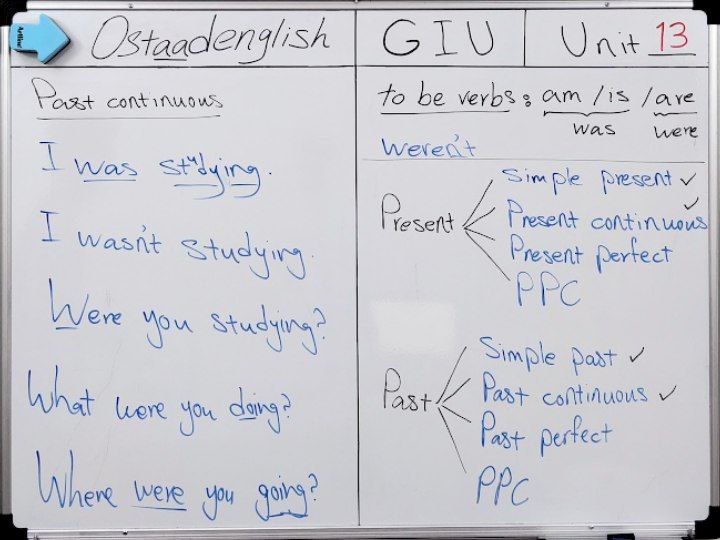 Ostaadenglish
GIU
Unit 13
Past continuous
I was studying.
I wasn't studying.
Were you studying?
What were you doing?
Where were you going?
to be verbs: am / is / are
was were
weren't
Present
Simple present ✓
Present continuous ✓
Present perfect
PPC
Past
Simple past ✓
Past continuous ✓
Past perfect
PPC